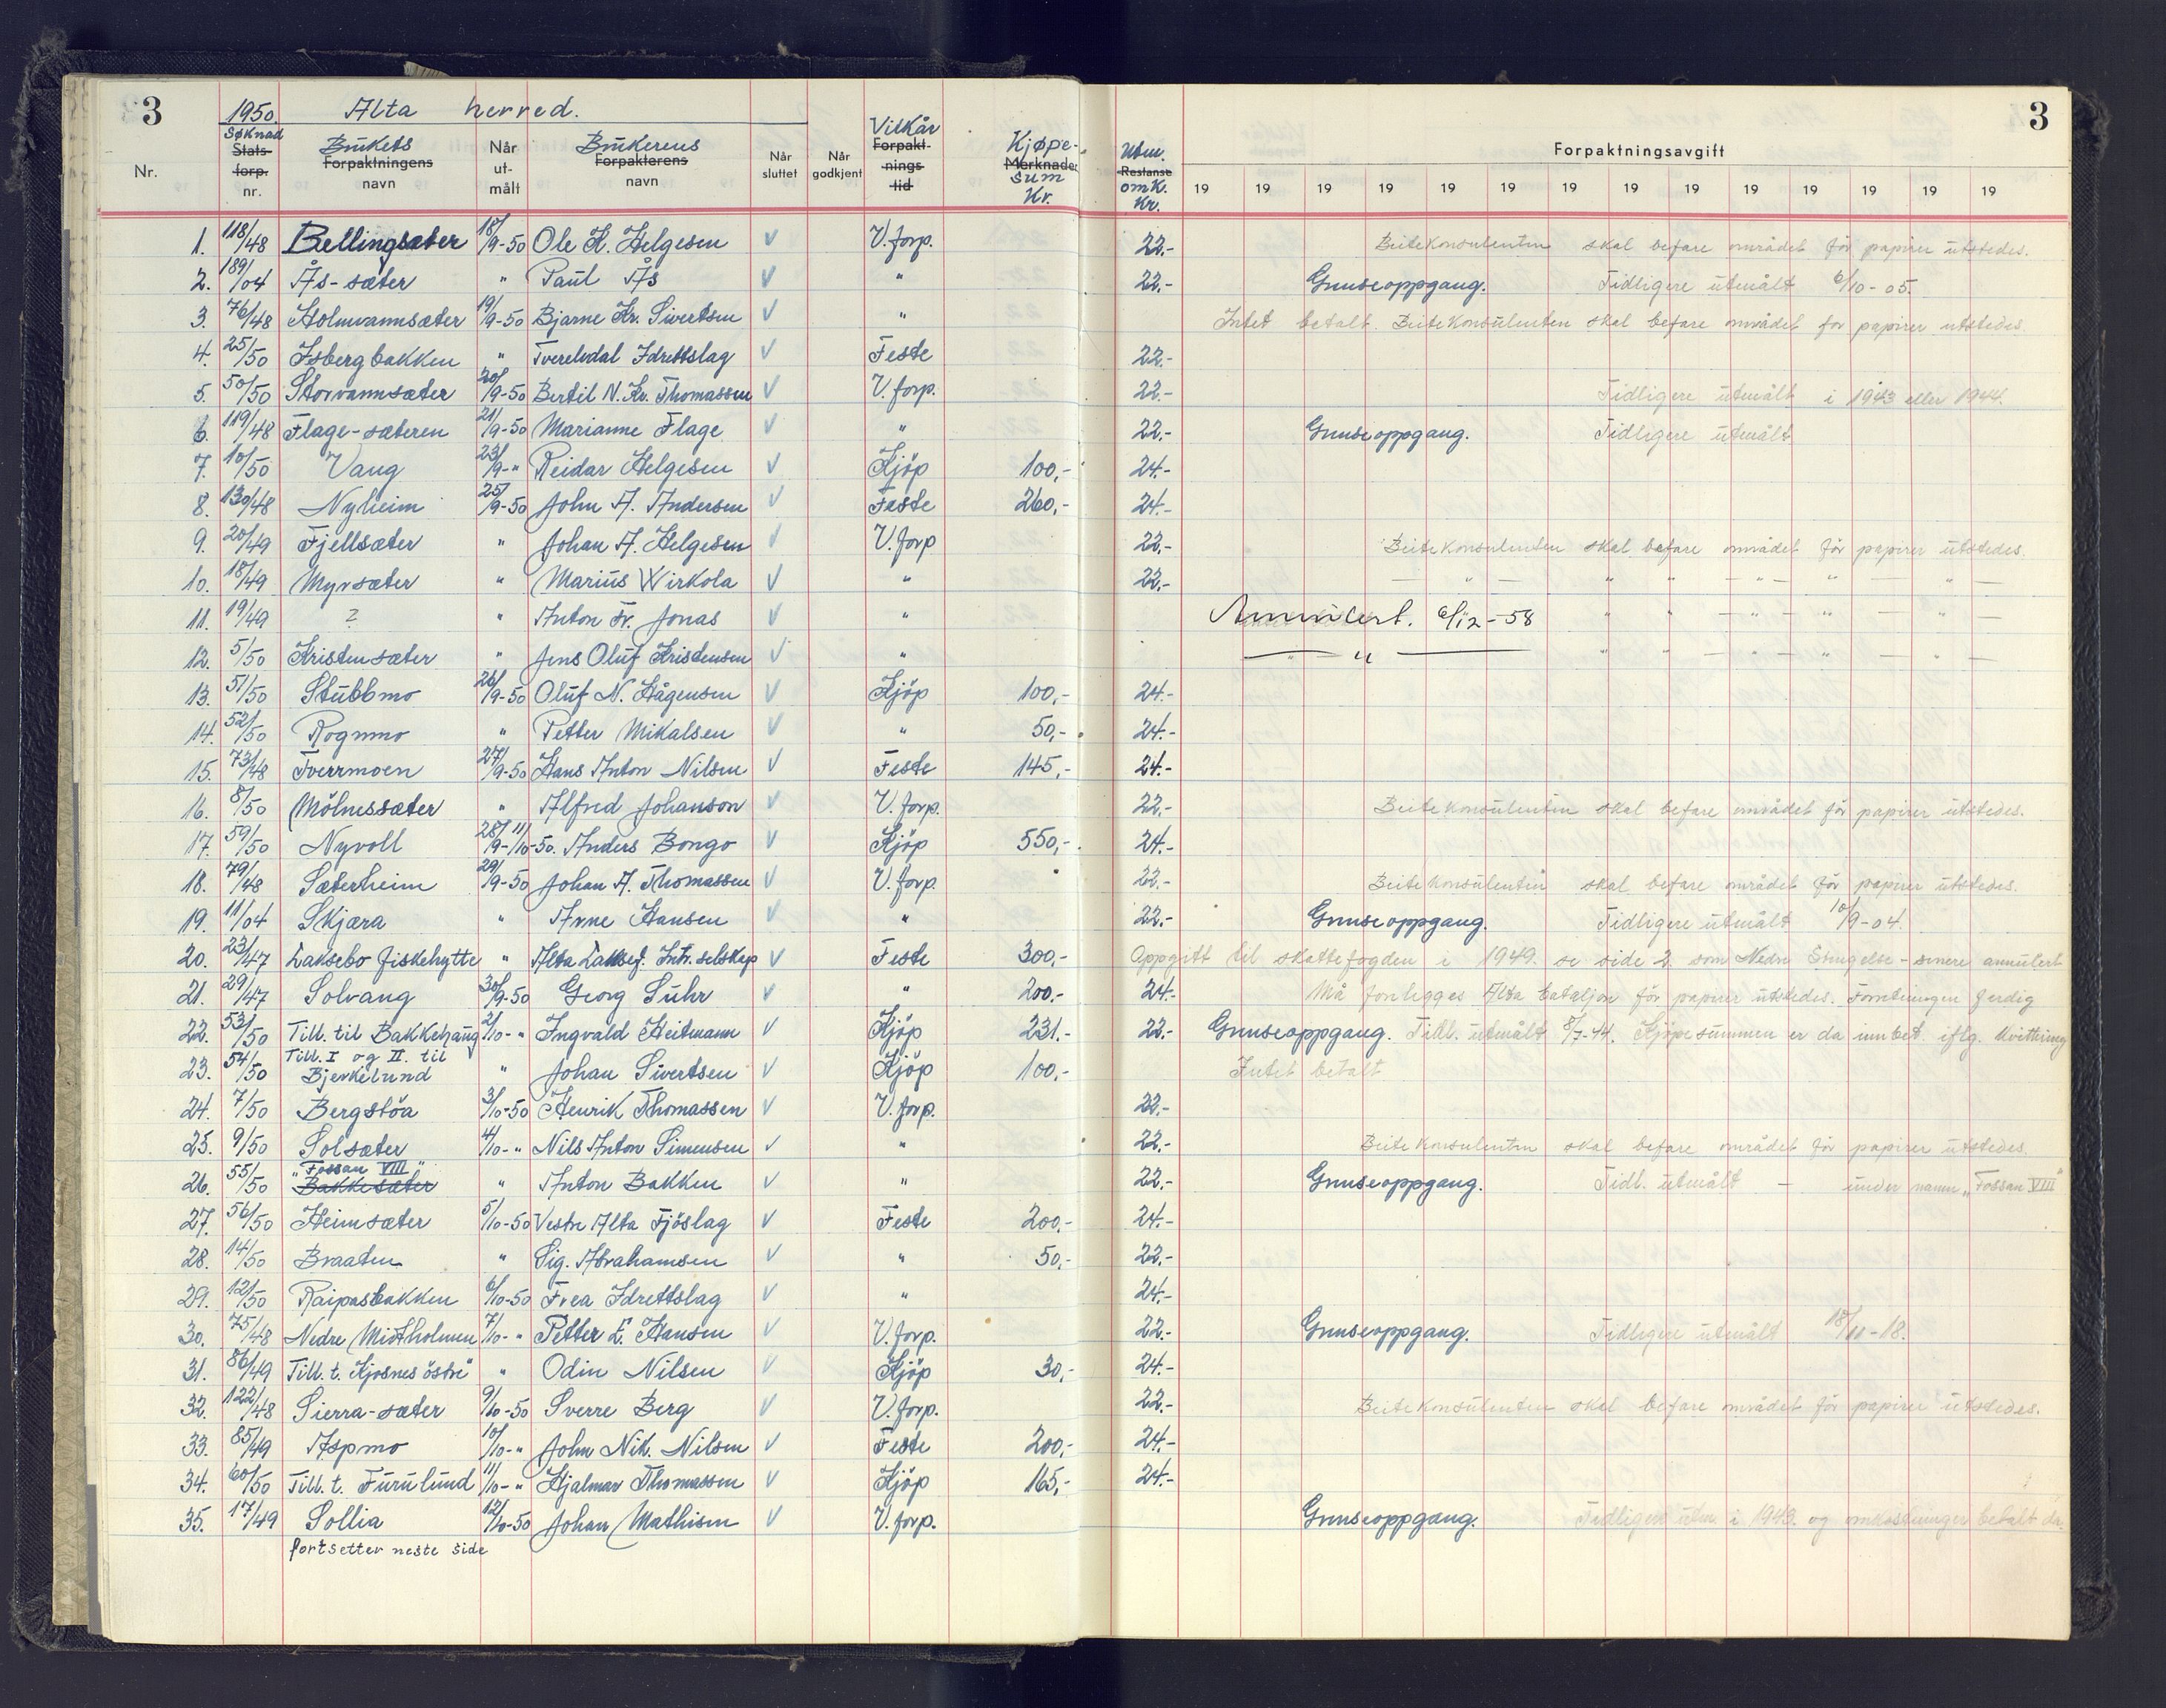 3 1950. Alta herred. 3
Nr. Søknad Stats-forp. nr. Brukets Forpaktningens navn Når utmålt Brukerens Forpakterens navn Når sluttet Når godkjent Vilkår Forpaktningstid Kjøpesum Kr. Merknader Utm. omk. Kr. Restanse Forpaktningsavgift
19 19 19 19 19 19 19 19 19 19 19 19 19 19
1. 118/48 Bellingsæter 18/9-50 Ole K. Helgesen V V.forp. 22.- Beitekonsulenten skal befare området før papirer utstedes.
2. 189/04 Ås-sæter " Paul Ås V " 22.- Grenseoppgang. Tidligere utmålt 6/10-05.
3. 76/48 Holmvannsæter 19/9-50 Bjarne Kr. Sivertsen V " Intet betalt. Beitekonsulenten skal befare området før papirer utstedes.
4. 25/50 Isbergbakken " Tverelvdal Idrettslag V Feste 22.-
5. 50/50 Storvannsæter 20/9-50 Bertil N. Kr. Thomassen V V.forp. 22.- Tidligere utmålt i 1943 eller 1944.
6. 119/48 Flage-sæteren 21/9-50 Marianne Flage V " 22.- Grenseoppgang. Tidligere utmålt
7. 10/50 Vang 23/9-" Reidar Helgesen V Kjöp 100,- 24.-
8. 130/48 Nyheim 25/9-50 John A. Andersen V Feste 260,- 24.-
9. 20/49 Fjellsæter " Johan A. Helgesen V V.forp 22.- Beitekonsulenten skal befare området før papirer utstedes.
10. 18/49 Myrsæter " Marius Wirkola V " 22.- — " — " " — " — " — " —
11. 19/49 ? " Anton Fr. Jonas V " Annulert. 6/12-58 " " — " — " — " —
12. 5/50 Kristensæter " Jens Oluf Kristensen V " — " — " " — " — " — " —
13. 51/50 Stubbmo 26/9-50 Oluf N. Hågensen V Kjöp 100,- 24.-
14. 52/50 Rognmo " Petter Mikalsen V " 50,- 24.-
15. 73/48 Tverrmoen 27/9-50 Hans Anton Nilsen V Feste 145,- 24.-
16. 8/50 Mölnessæter " Alfred Johanson V V.forp. 22.- Beitekonsulenten skal befare området før papirer utstedes.
17. 59/50 Nyvoll 28/9-11/10-50. Anders Bongo V Kjöp 550,- 24.-
18. 79/48 Sæterheim 29/9-50 Johan A. Thomassen V V.forp. 22.- Beitekonsulenten skal befare området før papirer utstedes.
19. 11/04 Skjæra " Arne Hansen V " 22.- Grenseoppgang. Tidligere utmålt 10/9-04.
20. 23/47 Laksebo fiskehytte " Alta Laksef. Intr. selskap V Feste 300,- Oppgitt til skattefogden i 1949. se side 2. som Nedre - senere annulert
21. 29/47 Solvang 30/9-50 Georg Suhr V " 200.- 24.- Må forelegges Alta bataljon før papirer utstedes. Forretningen ferdig
22. 53/50 Till. til Bakkehaug 2/10-" Ingvald Heitmann V Kjöp 231.- 22.- Grenseoppgang. Tidl. utmålt 8/7-44. Kjöpesummen er da innbet. iflg. kvittering
23. 54/50 Till. I og II. til Bjerkelund " Johan Sivertsen V Kjöp 100,- Intet betalt
24. 7/50 Bergstöa 3/10-50 Henrik Thomassen V V.forp. 22.-
25. 9/50 Solsæter 4/10-" Nils Anton Simensen V " 22.- Beitekonsulenten skal befare området før papirer utstedes.
26. 55/50 "Fossan VIII" Bakkesæter " Anton Bakken V " 22.- Grenseoppgang. Tidl. utmålt - under navn "Fossan VIII"
27. 56/50 Heimsæter 5/10-50 Vestre Alta Fjöslag V Feste 200,- 24.-
28. 14/50 Braaten " Sig. Abrahamsen V " 50,- 22.-
29. 12/50 Raipasbakken 6/10-50 Frea Idrettslag V " 24.-
30. 75/48 Nedre Midtholmen 7/10-" Petter E. Hansen V V.forp. 22.- Grenseoppgang. Tidligere utmålt 18/11-18.
31. 86/49 Till. t. Kjosnes östre " Odin Nilsen V Kjöp 30,- 24.-
32. 122/48 Sierra-sæter 9/10-50 Sverre Berg V V.forp. 22.- Beitekonsulenten skal befare området før papirer utstedes.
33. 85/49 Aspmo 10/10-" John Nik. Nilsen V Feste 200,- 24.-
34. 60/50 Till. t. Furulund 11/10-" Hjalmar Thomassen V Kjöp 165,- 24.-
35. 17/49 Sollia 12/10-50 Johan Mathisen V V.forp. Grenseoppgang. Tidligere utm. i 1949. og omkostninger betalt da.
fortsetter neste side